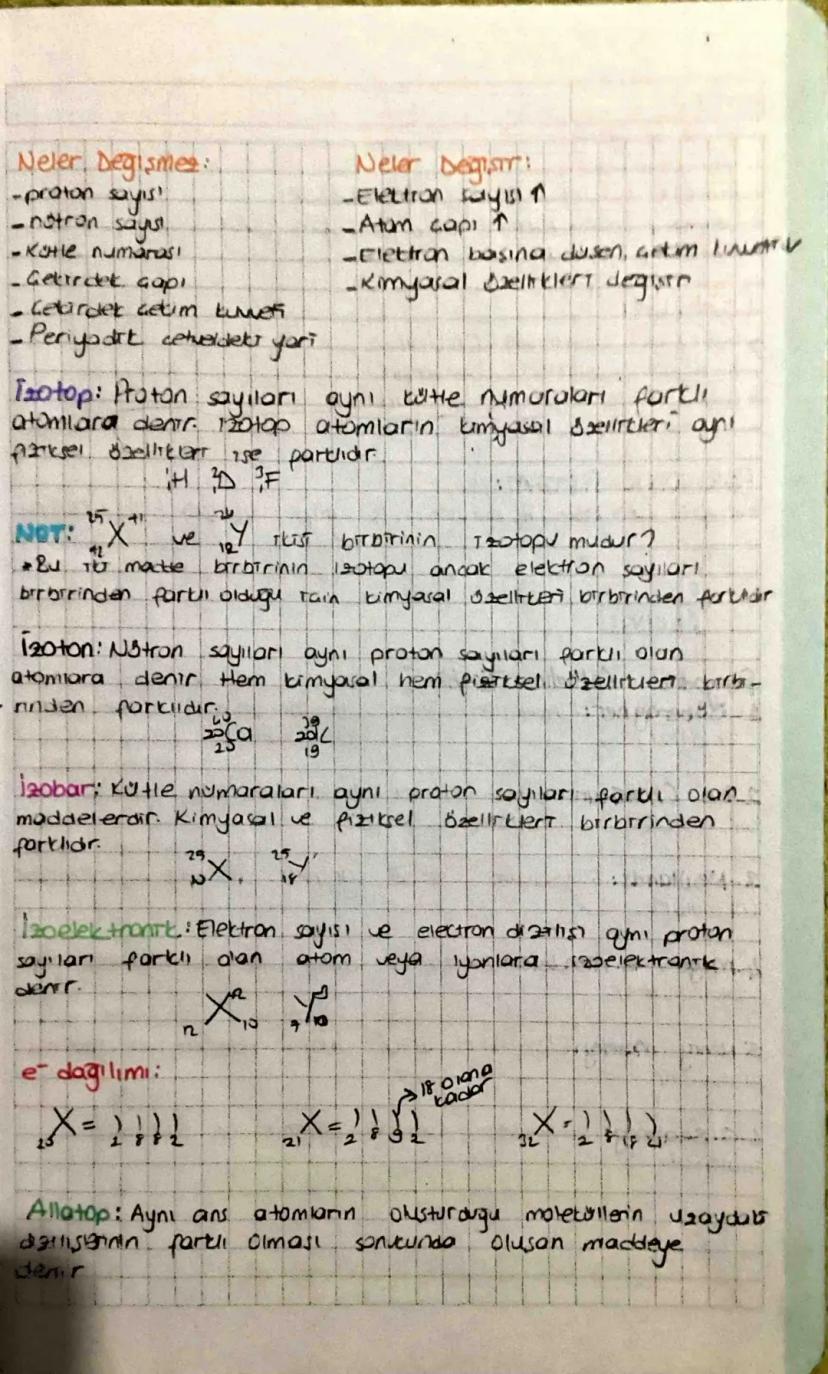 Neler Değişmez:
-proton sayısı
-nötron sayısı
-Kütle numarası
-Çekirdek çapı
-Çekirdek çekim kuvveti
-Periyodik cetveldeki yeri
Neler Değişir:
-Elektron sayısı ↑
-Atom çapı ↑
-Elektron başına düşen çekim kuvveti ↓
-Kimyasal özellikleri değişir
İzotop: Proton sayıları aynı kütle numaraları farklı
atomlara denir. İzotop atomların kimyasal özellikleri aynı
fiziksel özellikleri ise farklıdır.
¹₁H ²₁D ³₁F
NOT: X ve ₁₂Y ikisi birbirinin izotopu mudur?
*Bu iki madde birbirinin izotopu ancak elektron sayıları
birbirinden farklı olduğu için kimyasal özellikleri birbirinden farklıdır
İzoton: Nötron sayıları aynı proton sayıları farklı olan
atomlara denir. Hem kimyasal hem fiziksel özellikleri birbi-
rinden farklıdır.
Ca
İzobar: Kütle numaraları aynı proton sayıları farklı olan
maddelerdir. Kimyasal ve fiziksel özellikleri birbirinden
farklıdır.
X, Y
İzoelektronik: Elektron sayısı ve electron dizilişi aynı proton
sayıları farklı olan atom veya iyonlara izoelektronik
denir.
X₁₀ Y₁₀
e⁻ dağılımı:
→ 18 olana
kadar
X = ) ) ) ) 2 8 8 2 ₂₁X = ) ) ) ) 2 8 9 2 ₃₂X = ) ) ) ) 2 8 18 4
Allotop: Aynı cins atomların oluşturduğu moleküllerin uzaydaki
dizilişlerinin farklı olması sonucunda oluşan maddeye
denir